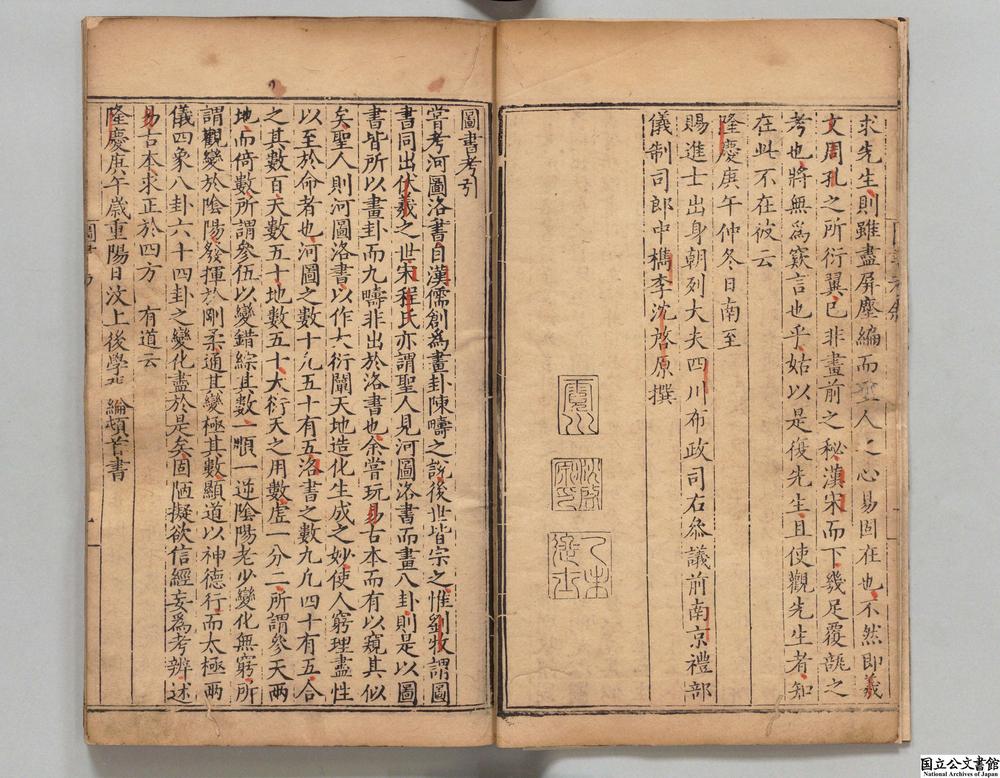 求先生則雖盡屏塵編而聖人之心易固在也不然即羲
文周孔之所衍翼已非畫前之秘漢宋而下幾足覆瓿之
考也將無爲窾言也乎姑以是復先生且使觀先生者知
在此不在彼云
隆慶庚午仲冬日南至
賜進士出身朝列大夫四川布政司右叅議前南京禮部
儀制司郎中檇李沈啓原撰
沈啟原印
乙未進士
圖書考引
嘗考河圖洛書自漢儒創爲畫卦陳疇之說後世皆宗之惟劉牧謂圖
書同出伏羲之世宋程氏亦謂聖人見河圖洛書而畫八卦則是以圖
書皆所以畫卦而九疇非出於洛書也余嘗玩易古本而有以窺其似
矣聖人則河圖洛書以作大衍闡天地造化生成之妙使人窮理盡性
以至於命者也河圖之數十凢五十有五洛書之數九凢四十有五合
之其數百天數五十地數五十大衍天之用數虛一分二所謂參天兩
地而倚數所謂參伍以變錯綜其數一順一逆陰陽老少變化無窮所
謂觀變於陰陽發揮於剛柔通其變極其數顯道以神德行而太極兩
儀四象八卦六十四卦之變化盡於是矣固陋擬欲信經妄爲考辨述
易古本求正於四方 有道云
隆慶庚午歲重陽日汶上後學 綸頓首書
国立公文書館
National Archives of Japan